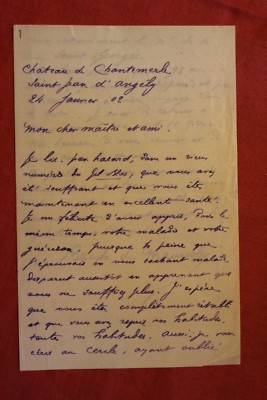 1
Chateau de Chantemerle
Saint Jean d'Angely
24 Janvier 02
Mon cher maître et ami !
Je lis, par hasard, dans un vieux
numéro du Gil Blas, que vous avez
été souffrant et que vous êtes
maintenant en excellente santé.
Je me félicite d'avoir appris, dans le
même temps, votre maladie et votre
guérison, puisque la peine que
j'éprouvais en vous sachant malade
disparut aussitôt en apprenant que
vous ne souffriez plus. J'espère
que vous êtes complètement rétabli
et que vous avez repris vos habitudes,
toutes vos habitudes. Aussi, je vous
écris au Cercle, ayant oublié